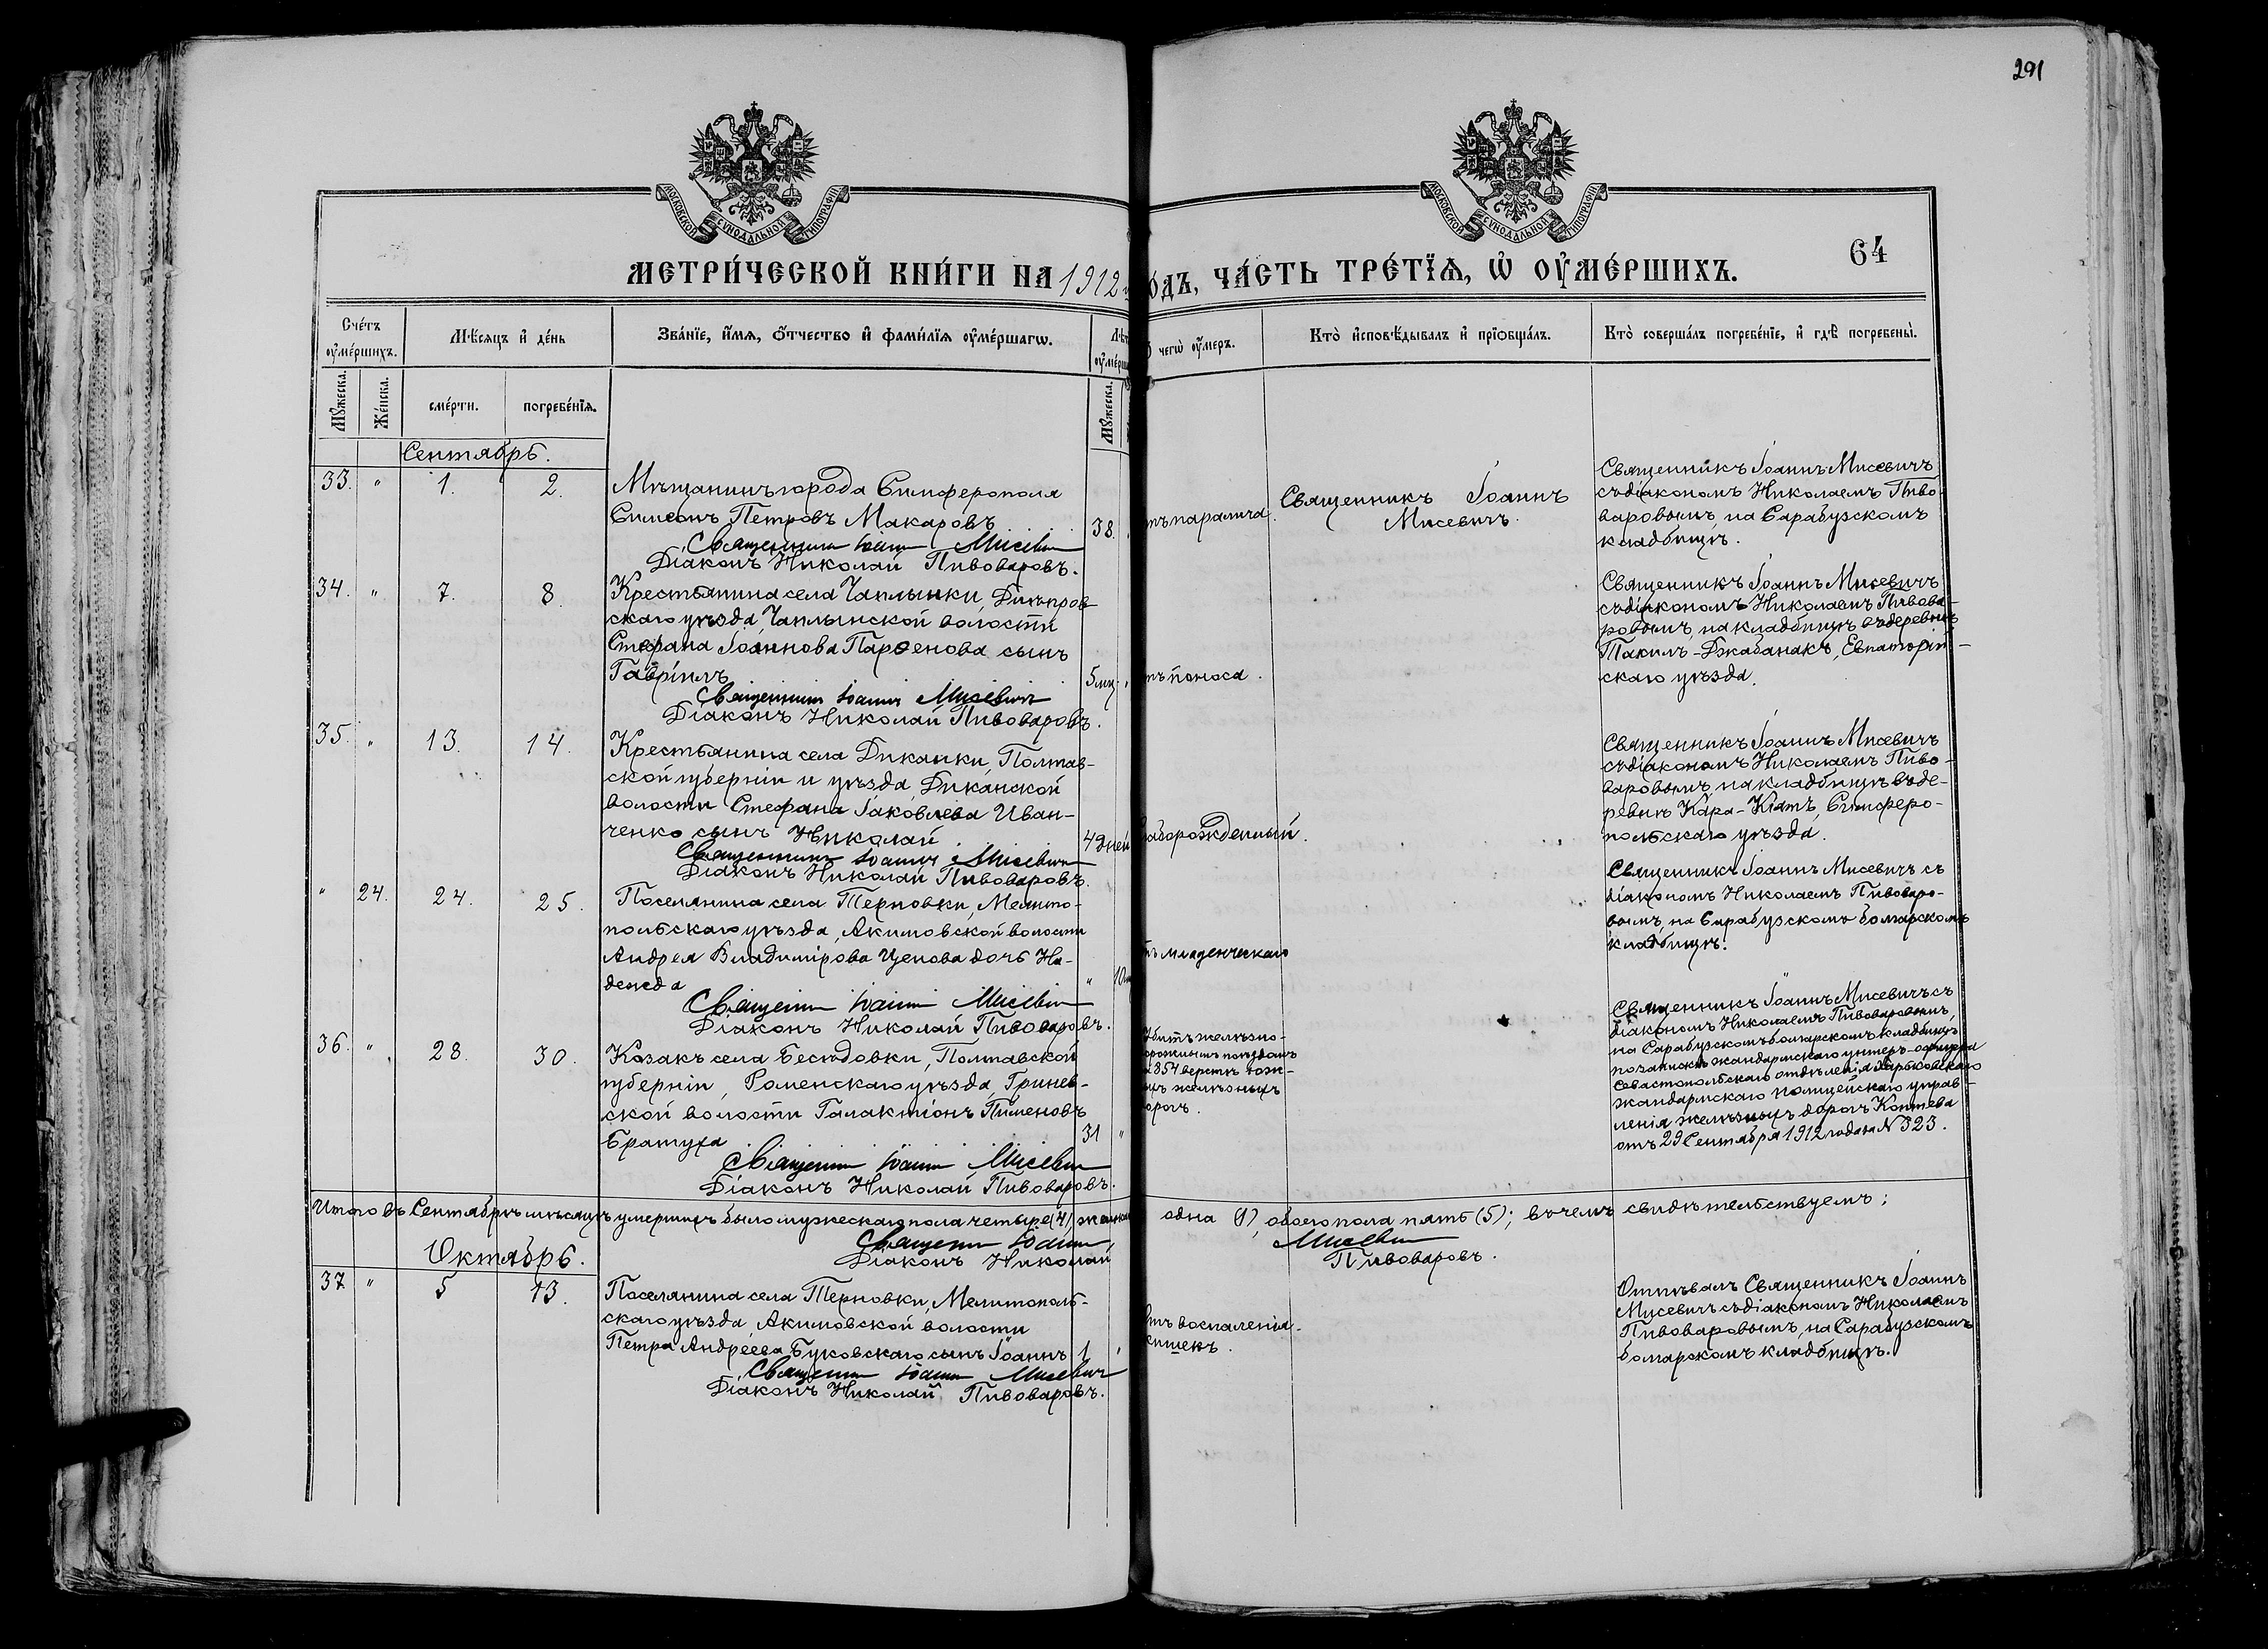 291
МОСКОВСКОЙ СУНОДАЛЬНОЙ ТИПОГРАФІИ
МОСКОВСКОЙ СУНОДАЛЬНОЙ ТИПОГРАФІИ
64
МЕТРИ́ЧЕСКОЙ КНИ́ГИ НА 1912 г
о́дъ, ЧА́СТЬ ТРЕ́ТЇѦ, Ѡ҆ ОУ҆МЕ́РШИХЪ.
Сче́тъ оу҆ме́ршихъ.
Мѣ́сяцъ и҆ де́нь
Зва́нїе, и҆́мя, о҆́тчество и҆ фами́лїя оу҆ме́ршагѡ.
Лѣт
оу҆ме́рш
чегѡ̀ оу҆́меръ.
Кто̀ и҆сповѣ́дывалъ и҆ прїѻбща́лъ.
Кто̀ соверша́лъ погребе́нїе, и҆ гдѣ̀ погребены̀.
Мꙋжеска.
Же́нска.
сме́рти.
погребе́нїя.
Мꙋжеска.
Сентябрь.
33. " 1. 2.
Мѣщанинъ города Симферополя
Симеонъ Петровъ Макаровъ
38.
Священникъ Іоаннъ Мисевичъ
Діаконъ Николай Пивоваровъ.
тъ паралича.
Священникъ Іоаннъ
Мисевичъ.
Священникъ Іоаннъ Мисевичъ
съ діакономъ Николаемъ Пиво-
варовымъ, на Сарабузскомъ
кладбищѣ.
34. " 7. 8.
Крестьянина села Чаплынки, Днѣпров-
скаго уѣзда, Чаплынской волости
Стефана Іоаннова Парѳенова сынъ
Гавріилъ
5 мц. "
Священникъ Іоаннъ Мисевичъ
Діаконъ Николай Пивоваровъ.
тъ поноса.
Священникъ Іоаннъ Мисевичъ
съ діакономъ Николаемъ Пивова-
ровымъ, на кладбищѣ въ деревнѣ
Такилъ-Джабанакъ, Евпаторій-
скаго уѣзда.
35. " 13. 14.
Крестьянина села Диканки, Полтав-
ской губерніи и уѣзда, Диканской
волости Стефана Іаковлева Иван-
ченко сынъ Николай
4 дней
Священникъ Іоаннъ Мисевичъ
Діаконъ Николай Пивоваровъ.
лаборожденный.
Священникъ Іоаннъ Мисевичъ
съ діакономъ Николаемъ Пиво-
варовымъ, на кладбищѣ въ де-
ревнѣ Кара-Кіятъ, Симферо-
польскаго уѣзда.
" 24. 24. 25.
Поселянина села Терновки, Мелито-
польскаго уѣзда, Акимовской волости
Андрея Владимірова Ценова дочь На-
дежда
" 10
Священникъ Іоаннъ Мисевичъ
Діаконъ Николай Пивоваровъ.
тъ младенческаго
Священникъ Іоаннъ Мисевичъ съ
діакономъ Николаемъ Пивоваро-
вымъ, на Сарабузскомъ болгарскомъ
кладбищѣ.
36. " 28. 30.
Козакъ села Бесѣдовки, Полтавской
губерніи, Роменскаго уѣзда, Гринев-
ской волости Галактіонъ Пименовъ
Братуха
31 "
Священникъ Іоаннъ Мисевичъ
Діаконъ Николай Пивоваровъ.
Убитъ желѣзно-
орожнымъ поѣздомъ
а 854 верстѣ Юж-
ыхъ желѣзныхъ
орогъ.
Священникъ Іоаннъ Мисевичъ съ
діакономъ Николаемъ Пивоваровымъ,
на Сарабузскомъ болгарскомъ кладбищѣ
по запискѣ жандармскаго унтеръ-офицера
Севастопольскаго отдѣленія Харьковскаго
жандармскаго полицейскаго управ-
ленія желѣзныхъ дорогъ Коптева
отъ 29 Сентября 1912 года за № 323.
Итого въ Сентябрѣ мѣсяцѣ умершихъ было мужескаго пола четыре (4), женска одна (1), обоего пола пять (5); въ чемъ свидѣтельствуемъ:
Священникъ Іоаннъ Мисевичъ
Діаконъ Николай Пивоваровъ.
Октябрь.
37 " 5 13.
Поселянина села Терновки, Мелитополь-
скаго уѣзда, Акимовской волости
Петра Андреева Буковскаго сынъ Іоаннъ
1 "
Священникъ Іоаннъ Мисевичъ
Діаконъ Николай Пивоваровъ.
тъ воспаленія
кишекъ.
Отпѣвалъ Священникъ Іоаннъ
Мисевичъ съ діакономъ Николаемъ
Пивоваровымъ, на Сарабузскомъ
болгарскомъ кладбищѣ.